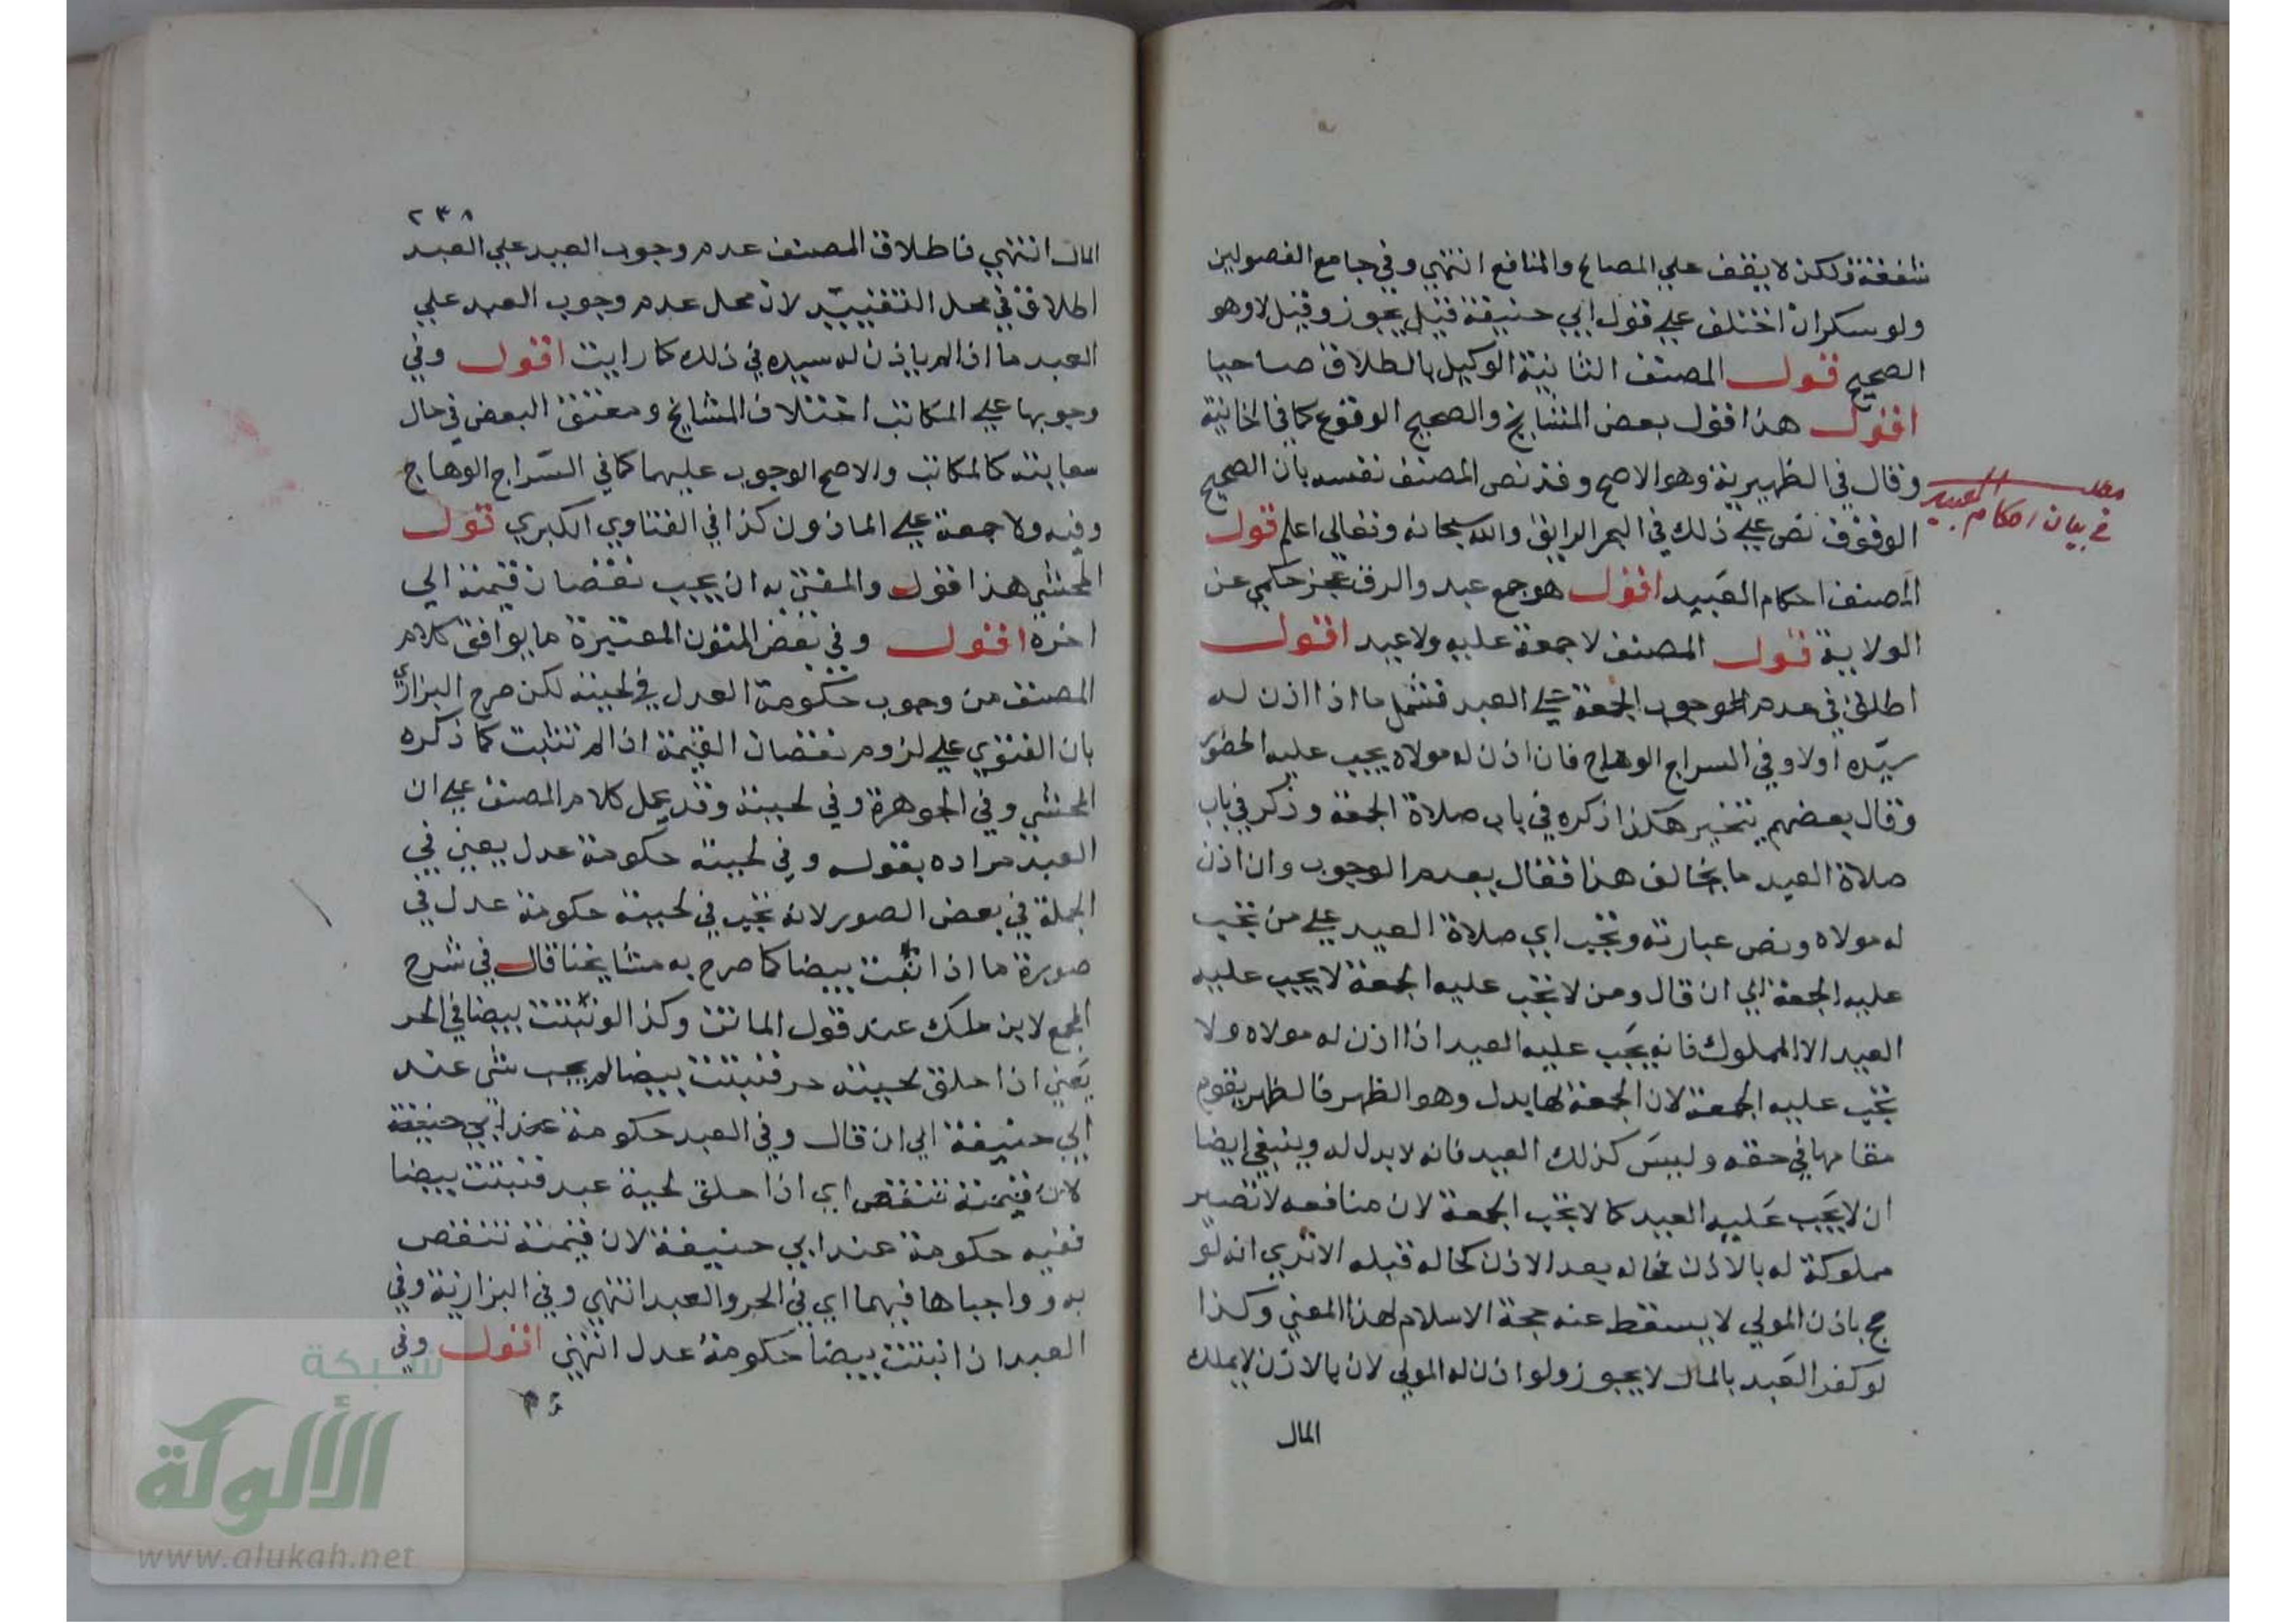 شفقة ولكن لا يقف علي المصالح والمنافع انتهي وفي جامع الفصولين
ولو سكران اختلف علي قول ابي حنيفة قيل يجوز وقيل لا وهو
الصحيح قول المصنف الثانية الوكيل بالطلاق صاحيا
اقول هذا قول بعض المشايخ والصحيح الوقوع كما في الخانية
وقال في الظهيرية وهو الاصح وقد نص المصنف نفسه بان الصحيح
الوقوف نص علي ذلك في البحر الرايق والله سبحانه وتعالي اعلم قول
المصنف احكام العبيد اقول هو جمع عبد والرق عجز حكمي عن
الولاية قول المصنف لا جمعة عليه ولا عيد اقول
اطلق في عدم الوجوب الجمعة علي العبد فشمل ما اذا اذن له
سيده اولا وفي السراج الوهاج فان اذن له مولاه يجب عليه الحضور
وقال بعضهم يتخير هكذا ذكره في باب صلاة الجمعة وذكر في باب
صلاة العيد ما يخالف هذا فقال بعدم الوجوب وان اذن
له مولاه ونص عبارته وتجب اي صلاة العيد علي من تجب
عليه الجمعة الي ان قال ومن لا تجب عليه الجمعة لا يجب عليه
العيد الا المملوك فانه يجب عليه العيد اذا اذن له مولاه ولا
تجب عليه الجمعة لان الجمعة لها بدل وهو الظهر فالظهر يقوم
مقامها في حقه وليس كذلك العيد فانه لا بدل له وينبغي ايضا
ان لا يجب عليه العيد كما لا تجب الجمعة لان منافعه لا تصير
مملوكة له بالاذن فحاله بعد الاذن كحاله قبله الا تري انه لو
حج باذن المولي لا يسقط عنه حجة الاسلام لهذا المعني وكذا
لو كفر العبد بالمال لا يجوز ولو اذن له المولي لان بالاذن لا يملك
المال
في بيان احكام العبيد
٢٣٨
المال انتهي فاطلاق المصنف عدم وجوب العيد علي العبد
اطلاق في محل التقييد لان محل عدم وجوب العيد علي
العبد ما اذا لم ياذن له سيده في ذلك كما رايت اقول وفي
وجوبها علي المكاتب اختلاف المشايخ ومعتق البعض في حال
سعايته كالمكاتب والاصح الوجوب عليهما كما في السراج الوهاج
وفيه ولا جمعة علي الماذون كذا في الفتاوي الكبري قول
المحشي هذا اقول والمفتي به ان يجب نقصان قيمته الي
اخره اقول وفي بعض المتون المعتبرة ما يوافق كلام
المصنف من وجوب حكومة العدل في لحيته لكن صرح البزازي
بان الفتوي علي لزوم نقصان القيمة اذا لم تنبت كما ذكره
المحشي وفي الجوهرة وفي لحيته وقد يحمل كلام المصنف علي ان
العبد مراده بقوله وفي لحيته حكومة عدل يعني في
الجملة في بعض الصور لانه تجب في لحيته حكومة عدل في
صورة ما اذا انبت بيضا كما صرح به مشايخنا قال في شرح
المجمع لابن ملك عند قول الماتن وكذا لو نبتت بيضا في الحر
يعني اذا حلق لحية حر فنبتت بيضا لم يجب شي عند
ابي حنيفة الي ان قال وفي العبد حكومة عند ابي حنيفة
لان قيمته تنقص اي اذا حلق لحية عبد فنبتت بيضا
ففيه حكومة عند ابي حنيفة لان قيمته تنقص
به وواجباها فيهما اي في الحر والعبد انتهي وفي البزازية وفي
العبد ان انبتت بيضا حكومة عدل انتهي اقول وفي
شبكة
الألوكة
www.alukah.net